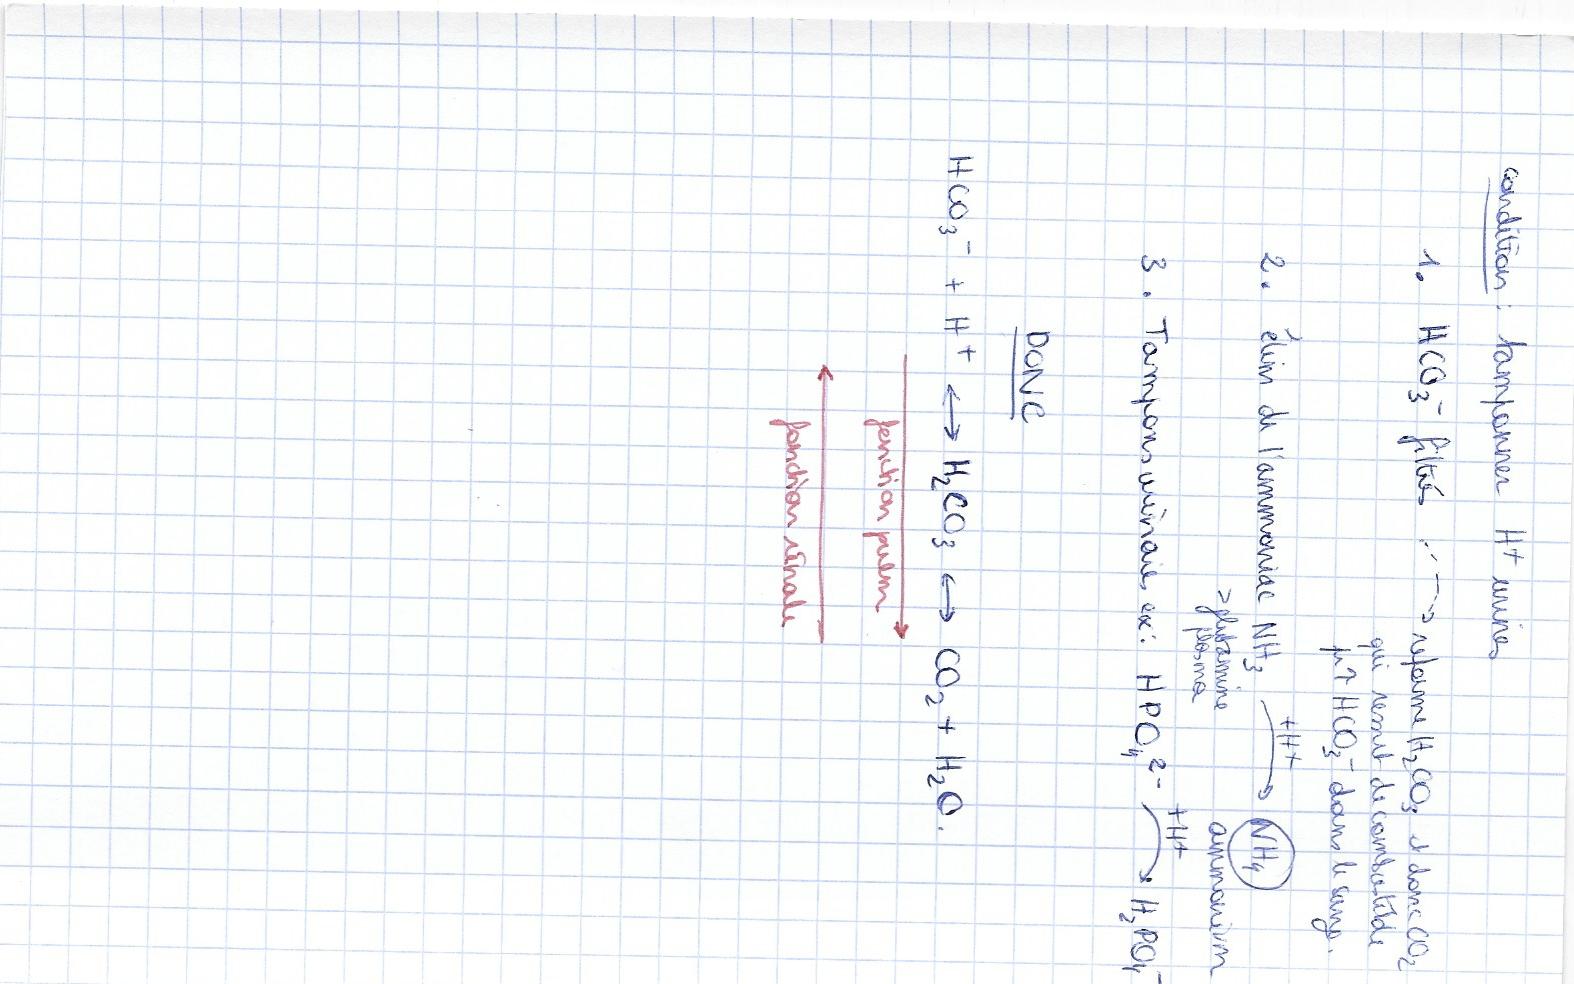 condition : tamponner H+ urines
1. HCO3- filtrés ---> reforme H2CO3 et donc CO2
qui ressert de combustible
pr ↑ HCO3- dans le sang.
2. élim de l'ammoniac NH3 +H+ → NH4
>glutamine ammonium
plasma
3. Tampons urinaires ex: HPO4 2- +H+ → H2PO4-
DONC
HCO3- + H+ ↔ H2CO3 ↔ CO2 + H2O.
fonction pulm
fonction rénale